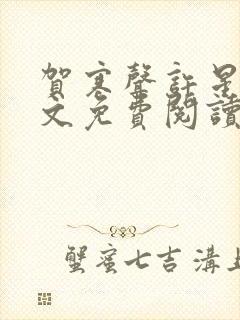 賀寒聲許星
文免費閱讀
蟹蜜七吉溝上